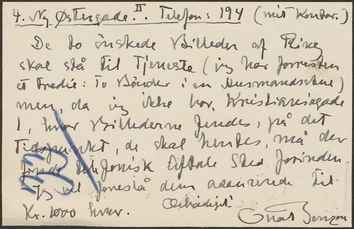 4. Ny Østergade. II. Telefon: 194 (mit Kontor.)
De to ønskede Billeder af Ring
skal stå til Tjeneste (jeg har forresten
et tredie: To Bønder i en Husmandsstue)
men, da jeg ikke bor, Kristianiagade
1, hvor Billederne findes, på det
Tidspunkt, de skal hentes, må der
finde telefonisk Aftale Sted forinden.
Jeg vil foreslå dem assurerede til
Kr. 1000 hver.
Ærbødigst